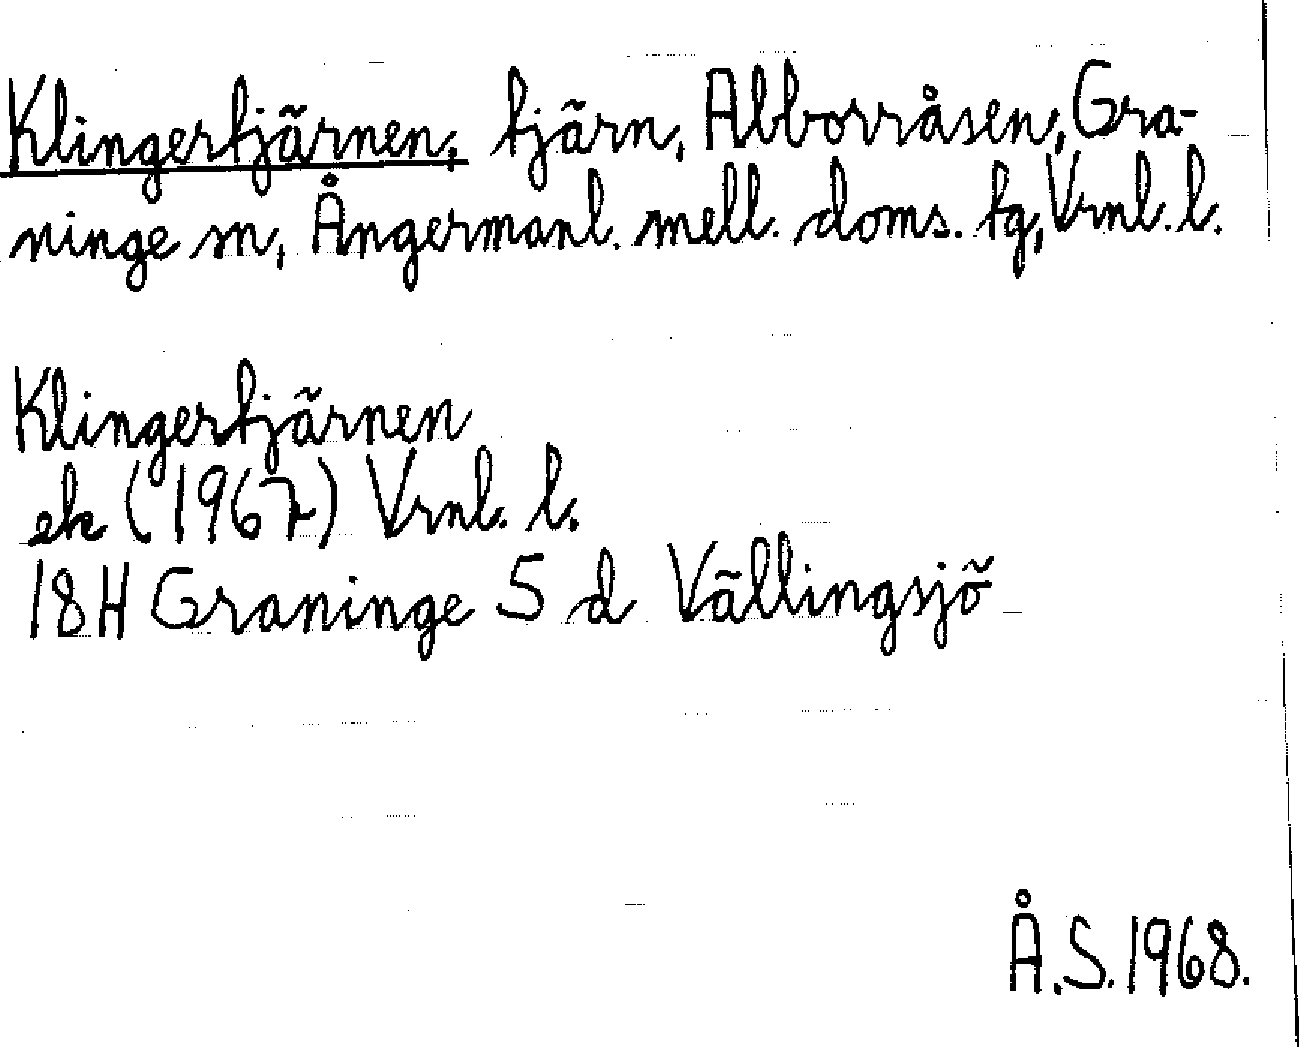 Klingertjärnen, tjärn, Abborråsen, Gra-
ninge sn, Ångermanl. mell. doms. tg, Vrnl. l.
Klingertjärnen
ek (1967) Vrnl. l.
18H Graninge 5 d Vällingsjö
Å.S. 1968.